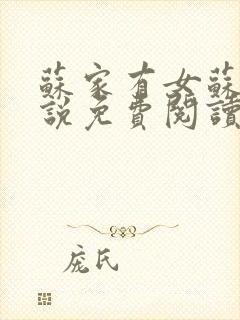 蘇家有女蘇
說免費閱讀
庞氏